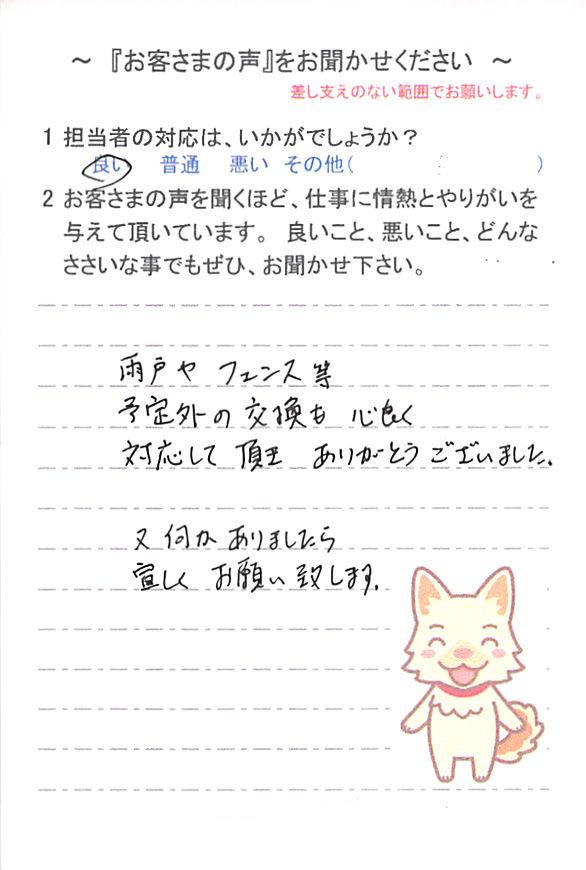 ～ 『お客さまの声』をお聞かせください ～
差し支えのない範囲でお願いします。
1 担当者の対応は、いかがでしょうか？
良い 普通 悪い その他( )
2 お客さまの声を聞くほど、仕事に情熱とやりがいを
与えて頂いています。 良いこと、悪いこと、どんな
ささいな事でもぜひ、お聞かせ下さい。
雨戸や フェンス等
予定外の 交換も 心良く
対応して 頂き ありがとう ございました。
又 何か ありましたら
宜しく お願い 致します。